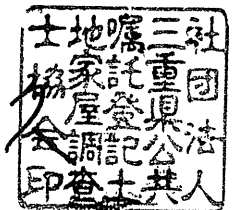 社団法人
三重県公共
嘱託登記土
地家屋調査
士協会印